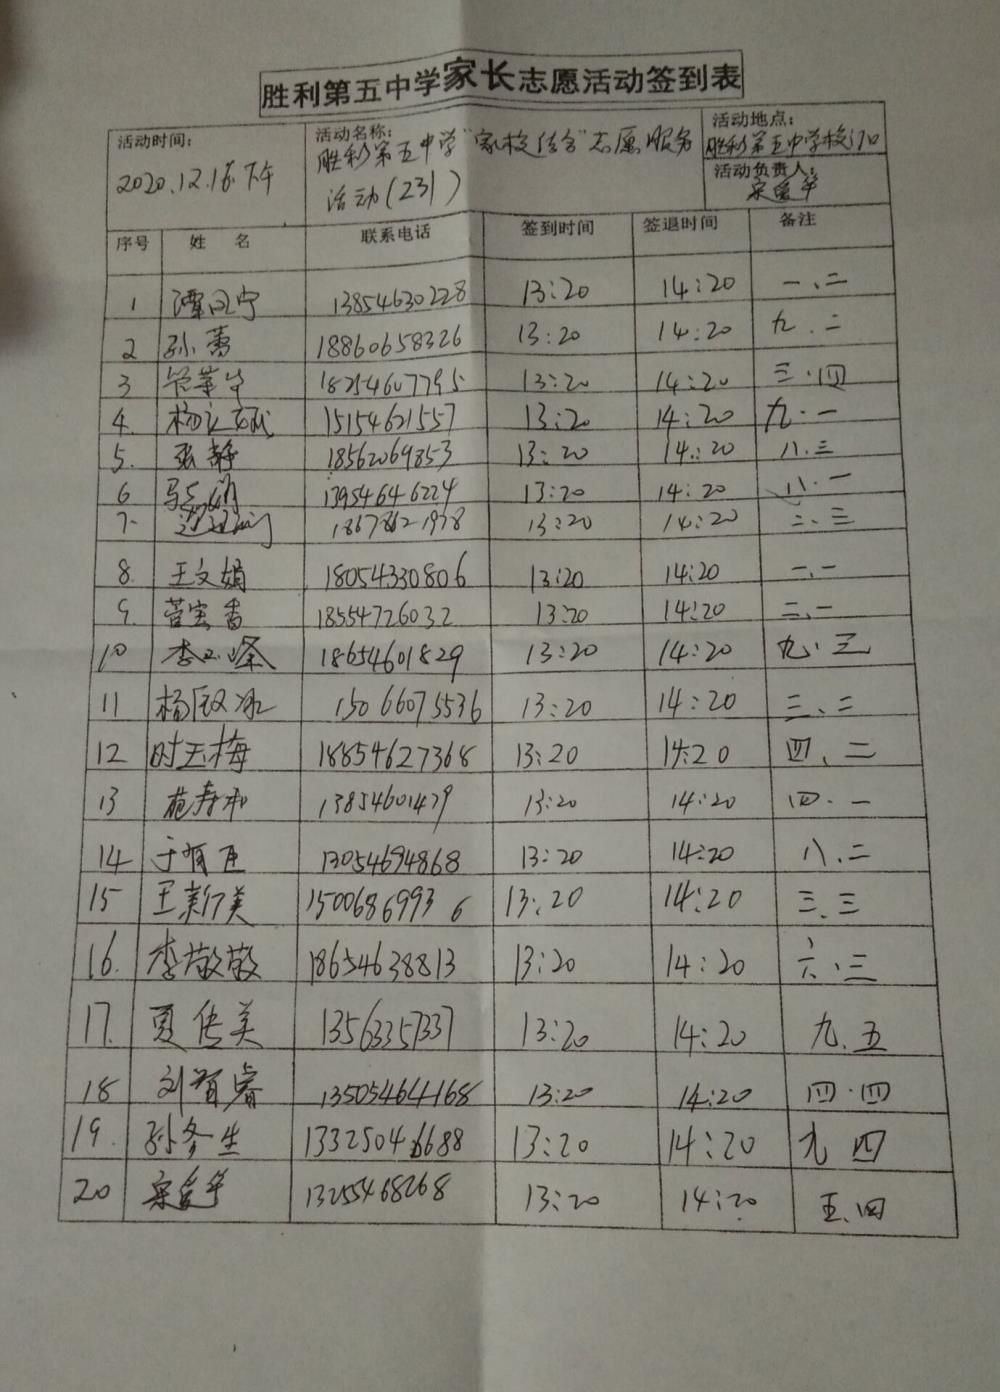 胜利第五中学家长志愿活动签到表
活动时间： 2020.12.16下午
活动名称： 胜利第五中学"家校结合"志愿服务
活动(231)
活动地点： 胜利第五中学校门口
活动负责人： 宋爱华
序号 姓名 联系电话 签到时间 签退时间 备注
1 谭风宁 13854630228 13:20 14:20 一、二
2 孙蕾 18860658326 13:20 14:20 九.二
3 18254607795 13:20 14:20 三.四
4. 15154621557 13:20 14:20 九.一
5. 张静 18562069853 13:20 14:20 八.三
6 13954646224 13:20 14:20 八.一
7. 18678621978 13:20 14:20 二、三
8. 王文娟 18054330806 13:20 14:20 一、一
9. 菅宝香 18554726032 13:20 14:20 三、一
10 李玉峰 18654601829 13:20 14:20 九.三
11 15066075536 13:20 14:20 三、二
12 时玉梅 18854627368 13:20 14:20 四、二
13 13854601479 13:20 14:20 四.一
14 于有臣 13054694868 13:20 14:20 八.二
15 王新美 15006869936 13:20 14:20 三、三
16. 李敬敬 18654638813 13:20 14:20 六.三
17. 夏传美 13563357337 13:20 14:20 九.五
18 刘智睿 13505464168 13:20 14:20 四.四
19. 孙冬生 13325046688 13:20 14:20 九 四
20 宋爱华 13255468268 13:20 14:20 五.四